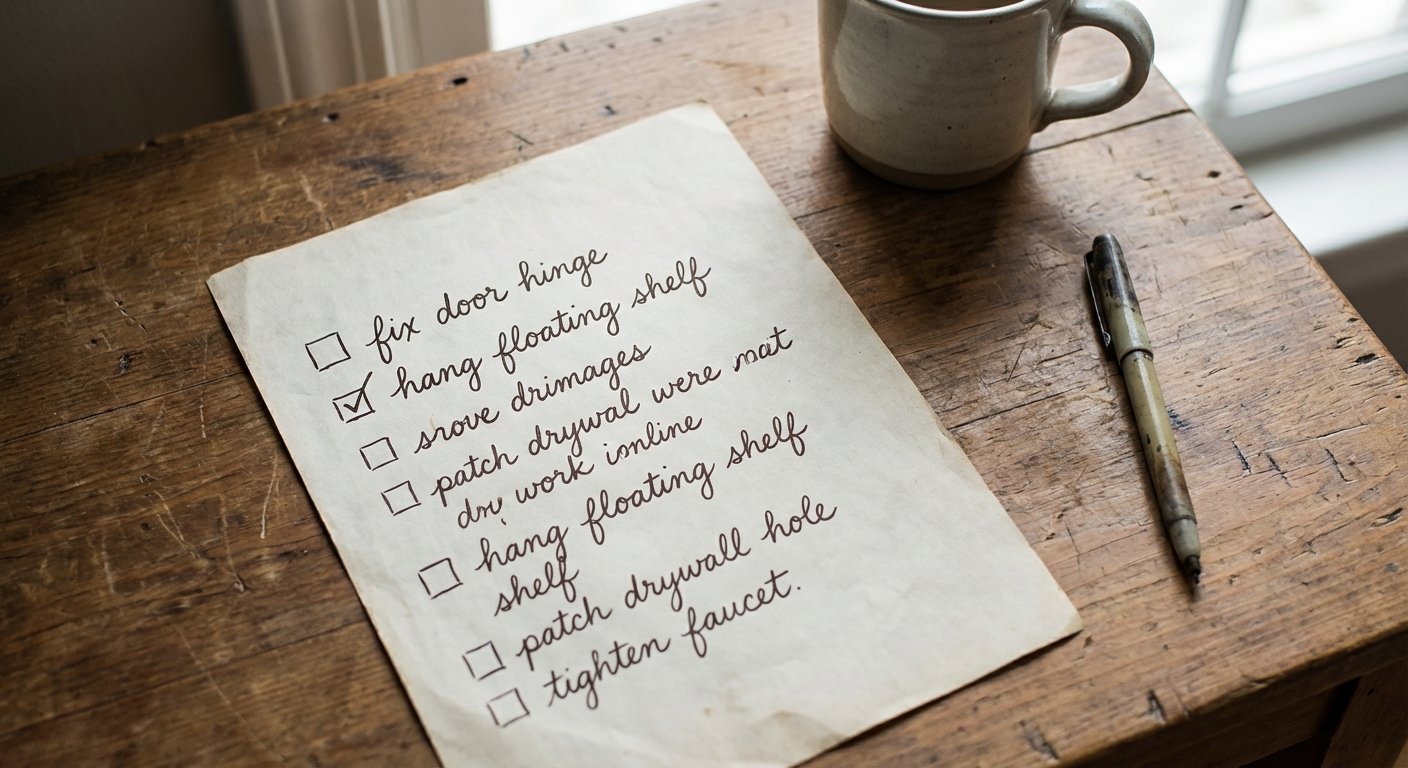 fix door hinge
hang floating shelf
srove drimages
patch drywal were mat
dry work imline
hang floating shelf
shelf
patch drywall hole
tighten faucet.